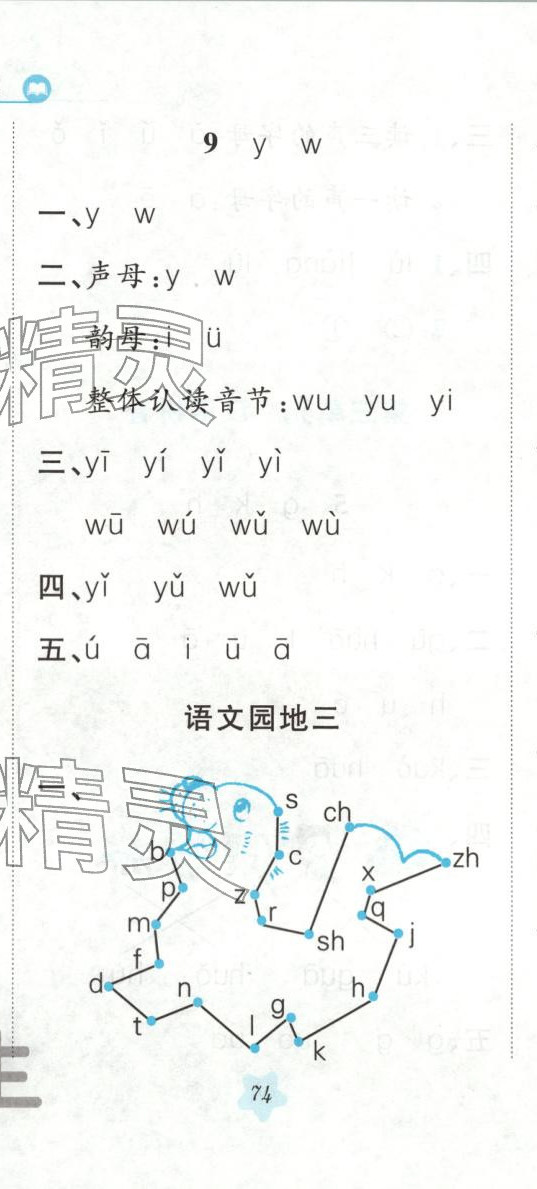 9 y w
一、y w
二、声母:y w
韵母:i ü
整体认读音节:wu yu yi
三、yī yí yǐ yì
wū wú wǔ wù
四、yǐ yǔ wǔ
五、ú ā i ū ā
语文园地三
一、
s
ch
b
c
zh
p
z
x
m
r
q
sh
j
f
d
n
h
t
l
g
k
74
精灵
精灵